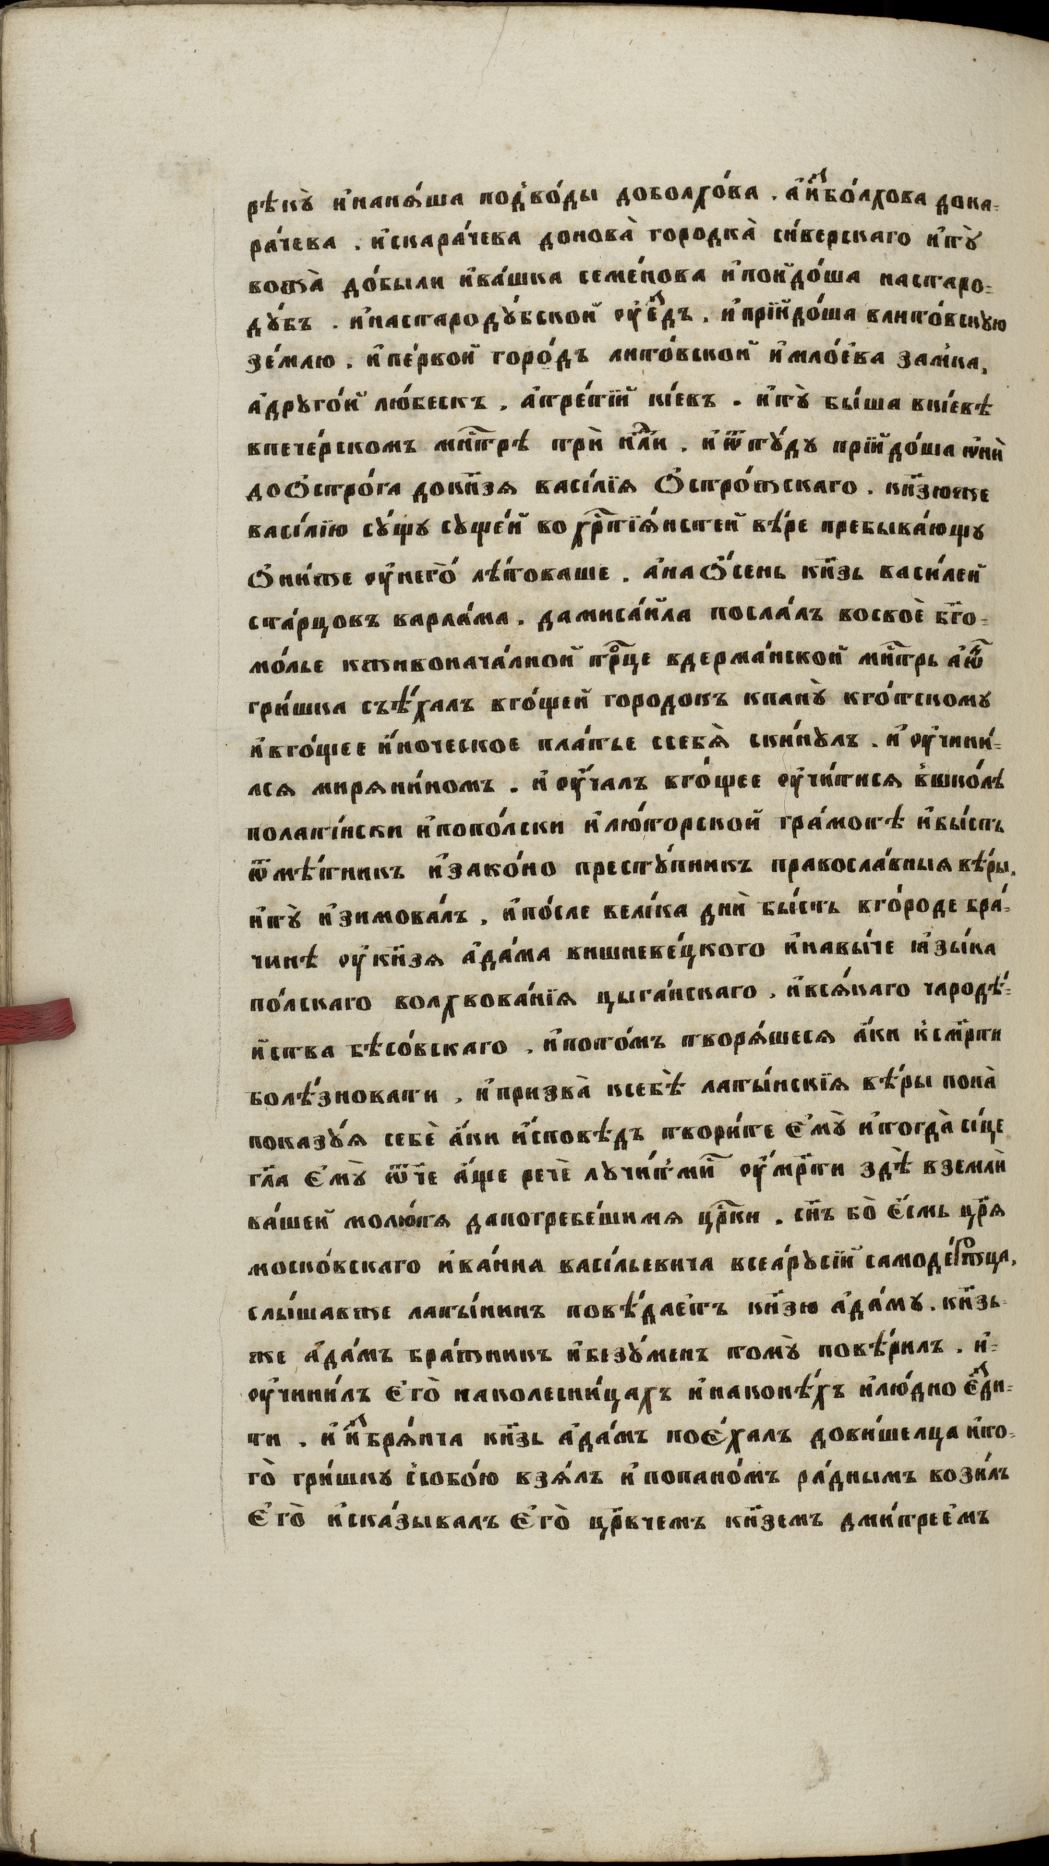 рѣкꙋ̀ и҆наѧ́ша подво́ды доболхо́ва . а҆и҆збо́лхова дока-
ра́чева . и҆скара́чева донова̀ городка̀ си́верскаго и҆тꙋ̀
вожа̀ до́были и҆ва́шка семе́нова и҆пои҆до́ша настаро-
дꙋ́бъ . и҆настародꙋ́бской ᲂу҆ѣ́здъ , и҆прїи҆до́ша влито́вскую
зе́млю . и҆пе́рвой горо́дъ лито́вской и҆мло́ева за́мка ,
а҆дрꙋго́й лю́бескъ . а҆тре́тїй кі́евъ . и҆тꙋ̀ бы́ша вкі́евѣ
впече́рскомъ мн҃трѣ трѝ нл҃и . и҆ѿтꙋ́дꙋ прїи҆до́ша ѻ҆нѝ
доѻ҆стро́га докн҃зѧ васі́лїѧ ѻ҆стро́жскаго . кн҃зюже
васі́лїю сꙋ́щꙋ сꙋще́й во хр҃тїѧ́нстей вѣ́ре пребыва́ющꙋ
ѻ҆ни́же ᲂу҆него́ лѣ́товаше . а҆наѻ҆́сень кн҃зь васи́лей
ста́рцовъ варла́ма . дамиса́йла посла́лъ восвоѐ бг҃о-
мо́лье кживонача́лной тр҃це вдерма́нской мн҃трь а҆ѿ
гри́шка съѣ́халъ вго́щей городокъ кпанꙋ̀ кго́тскомꙋ
и҆вго́щее и҆́ноческое пла́тье ссебѧ̀ ски́нꙋлъ . и҆ ᲂу҆чини́-
лсѧ мирѧни́номъ . и҆ ᲂу҆ча́лъ вго́щее ᲂу҆чи́тисѧ вшко́лѣ
полати́нски и҆попо́лски и҆лю́торской гра́мотѣ и҆бы́сть
ѿмѣ́тникъ и҆зако́но престꙋ́пникъ правосла́вныѧ вѣ́ры .
и҆тꙋ̀ и҆зимова́лъ , и҆по́сле вели́ка днѝ бы́сть вго́роде бра́-
чинѣ ᲂу҆кн҃зѧ а҆да́ма вишневе́цкого и҆навы́че ꙗ҆зы́ка
по́лскаго волхвова́нїѧ цыга́нскаго , и҆всѧ́каго чародѣ́-
йства бѣсо́вскаго , и҆пото́мъ творѧ́шесѧ а҆́ки ксм҃рти
болѣ́зновати , и҆призва̀ ксебѣ̀ латы́нскїѧ вѣ́ры попа̀
показꙋ́ѧ себѐ а҆́ки и҆́сповѣдъ твори́те є҆мꙋ̀ и҆тогда̀ си́це
гл҃а є҆мꙋ̀ ѿч҃е а҆́ще речѐ лꙋчи́тмиⷭ ᲂу҆мр҃ти здѣ̀ вземлѝ
ва́шей молю́тѧ дапогребе́шимѧ цр҃ки . сн҃ъ бо̀ є҆́смь цр҃ѧ
моско́вскаго и҆ва́нна васі́льевича всеа҆рꙋсїй самоде́ржца .
слы́шавже латы́нинъ повѣ́даетъ кн҃зю а҆да́мꙋ . кн҃зь
же а҆да́мъ бра́жникъ и҆безꙋ́менъ томꙋ̀ повѣ́рилъ . и҆-
ᲂу҆чини́лъ є҆го̀ наколесни́цахъ и҆наконѣ́хъ и҆лю́дно ѣ҆́зди-
ти . и҆ и҆збрѧ́нча кн҃зь а҆да́мъ пое́халъ дови́шелца и҆то-
го̀ гри́шкꙋ собо́ю взѧ́лъ и҆попано́мъ ра́днымъ вози́лъ
є҆го̀ и҆ска́зывалъ є҆го̀ цр҃вчемъ кн҃земъ дми́треемъ